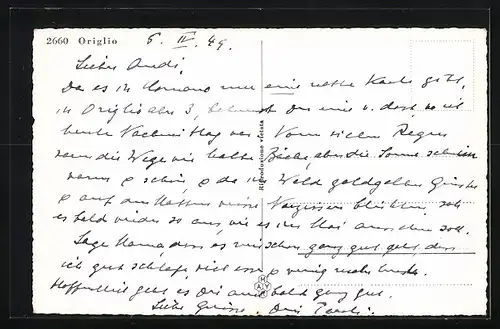 2660 Origlio
6. IV. 49.
Liebe Andi,
Da es in Comano nur eine nette Karte gibt,
in Origlio aber 3, bekommst Du nur v. dort, wo ich
heute Nachmittag war. Vom vielen Regen
waren die Wege wie halbe Bäche, aber die Sonne schien
warm & schön, & da im Wald goldgelber Ginster
& auf den Matten weisse Narzissen blühten, soll
es bald wieder so aus, wie es im Mai aussehen soll.
Sage Mama, dass es mir schon ganz gut geht, dass
ich gut schlafe, viel esse & wenig mehr huste.
Hoffentlich geht es Dir auch bald ganz gut.
Liebe Grüsse. Dein
Riproduzione vietata